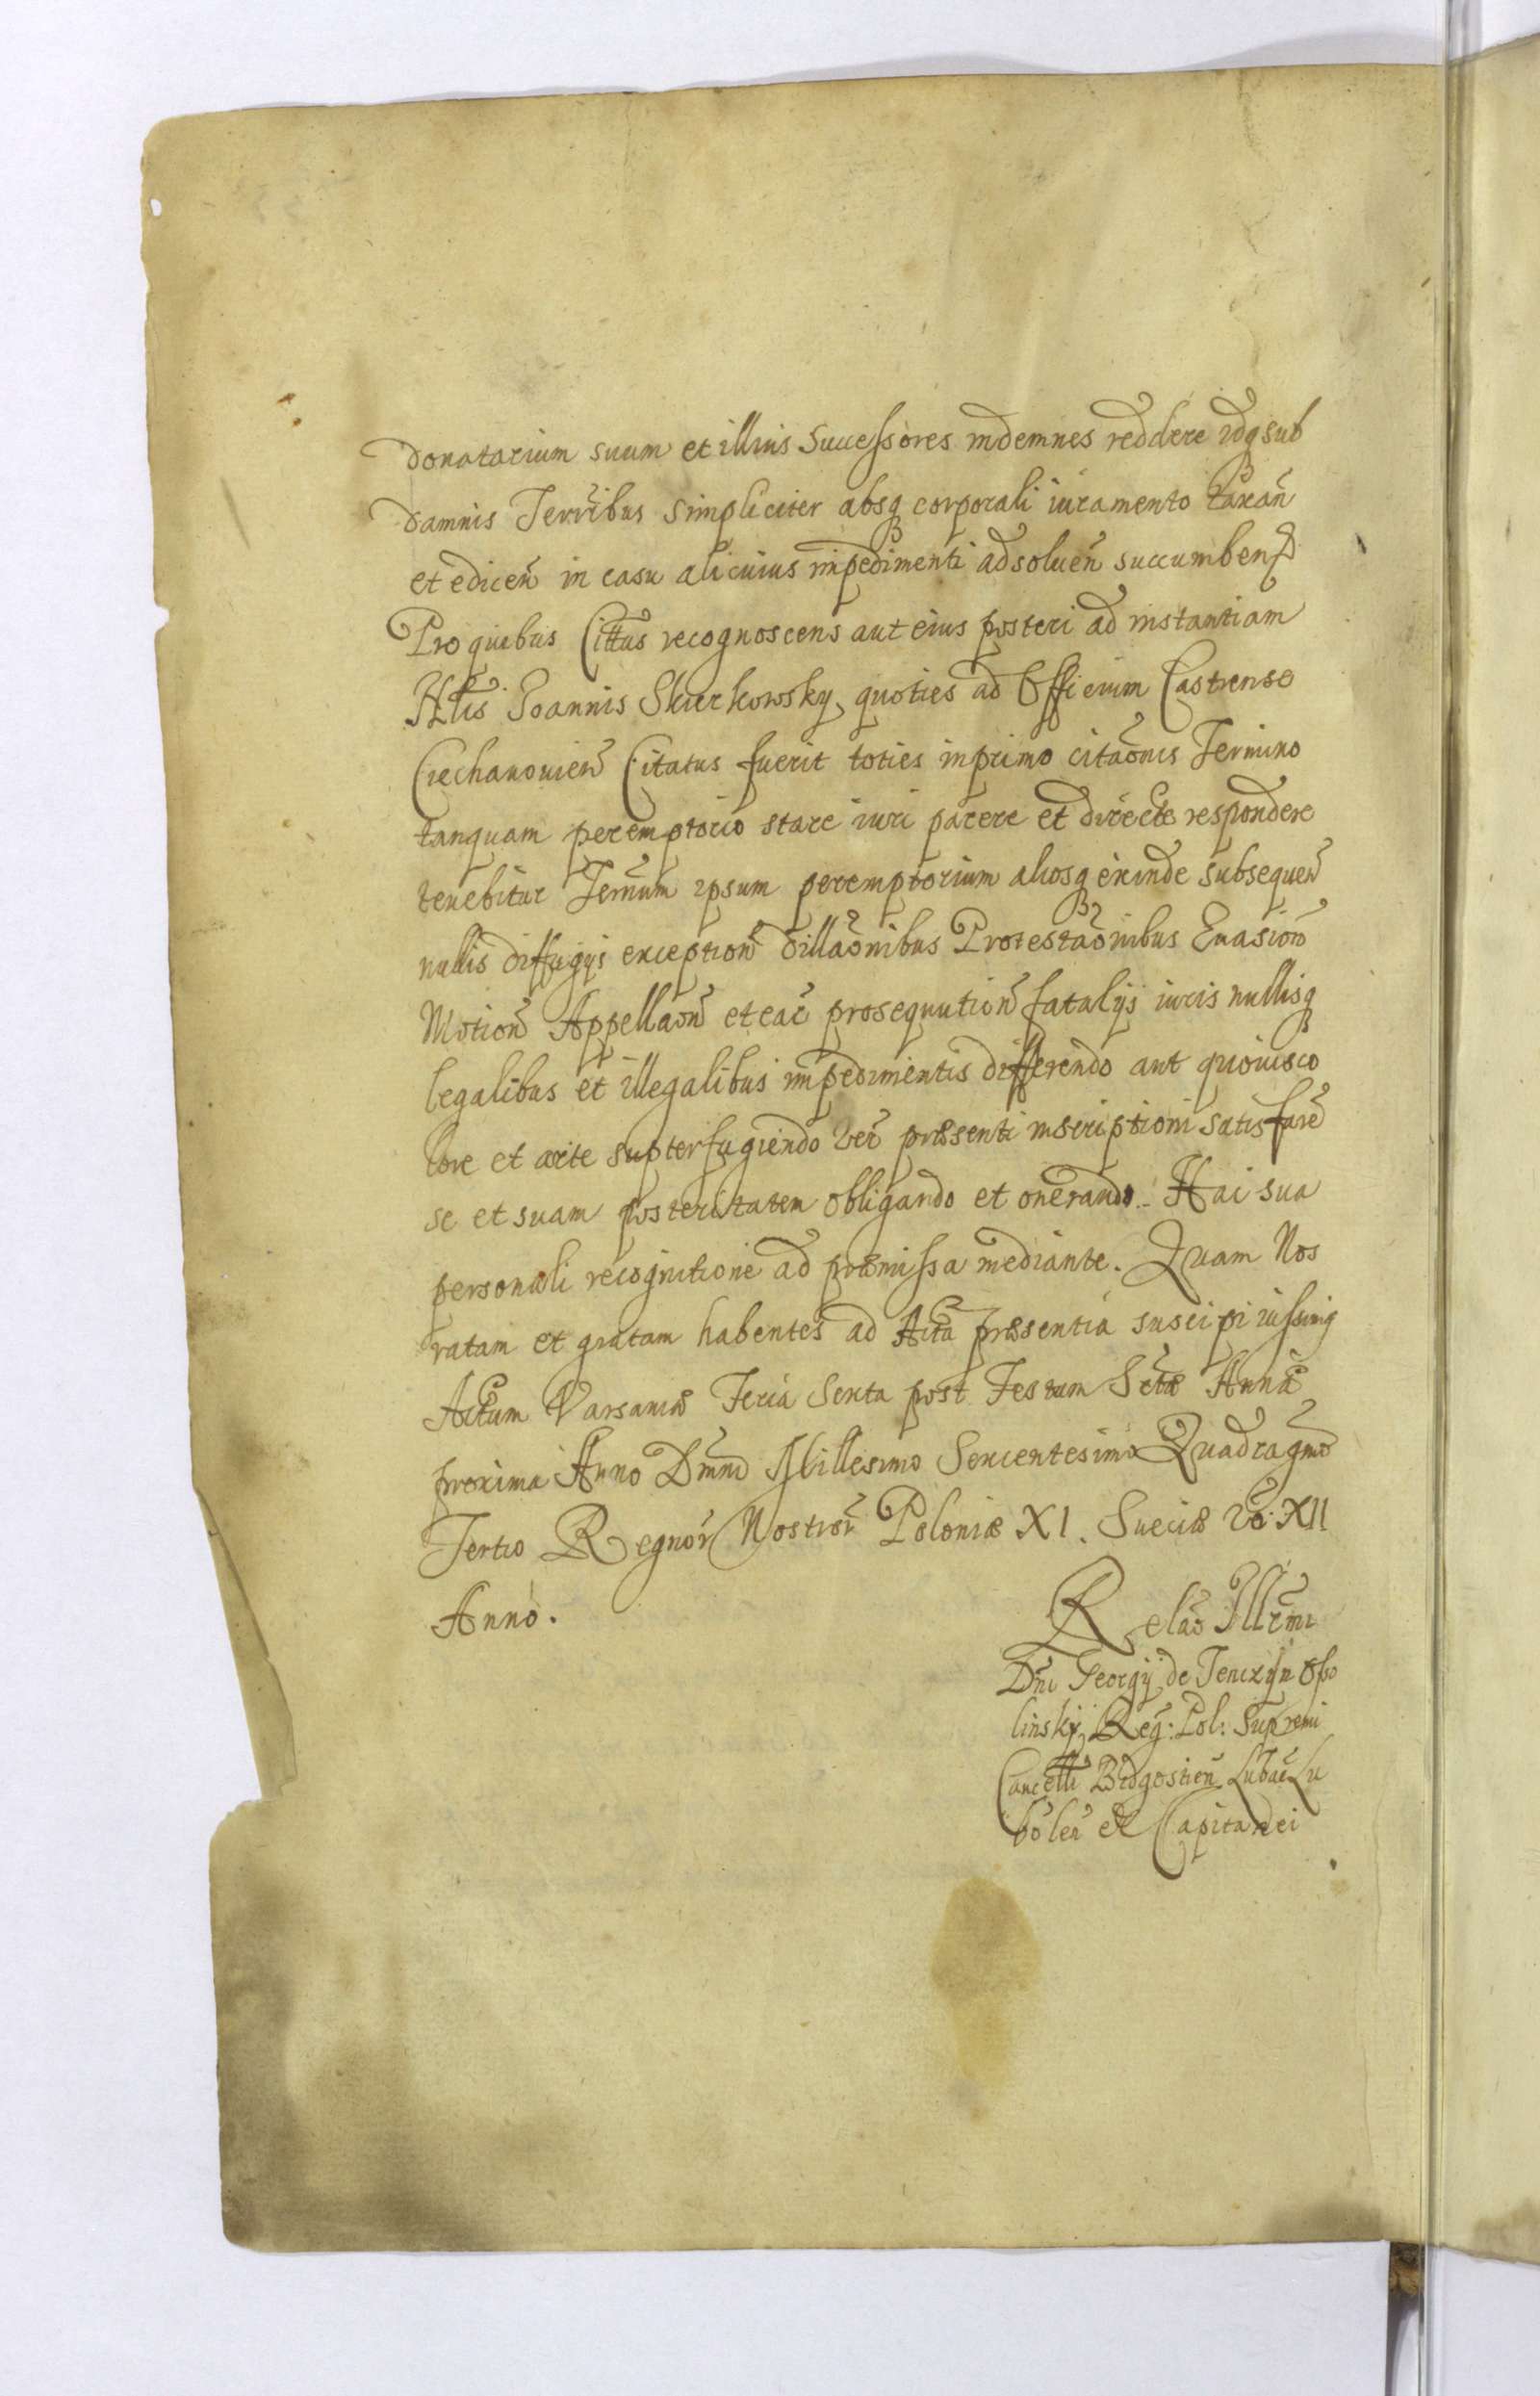 donatarium suum et illius Successores indemnes reddere idq sub
damnis Terribus simpliciter absq corporali iuramento taxan̄
et edicen̄ in casu alicuius impedimenti adsoluen̄ succumben̄d
Pro quibus Cittus recognoscens aut eius posteri ad instantiam
Joannis Skierkowsky quoties ad Officium Castrense
Ciechanouien̄ Citatus fuerit toties in primo citaōnis Termino
tanquam peremptorio stare iuri parere et directe respondere
tenebitur Ter̄num ipsum peremptorium aliosq exinde subsequen̄
nullis diffugijs exception̄ dillaōnibus Protestaōnibus Euasion̄
Motion̄ Appellaōn̄ et ear̄ prosequution̄ fatalijs iuris nullisq
legalibus et illegalibus impedimentis differendo aut quouisco
lore et arte supterfugiendo Ver̄ præsenti inscriptioni satisfare
se et suam posteritatem obligando et onerando. Hac sua
personali recognitione ad præmissa mediante. Quam Nos
ratam et gratam habentes ad Acta præsentia suscipi iussimq
Actum Varsauiæ Feria Sexta post Festum Sctæ Annæ
proxima Anno Dnni Millesimo Sexcentesimo Quadragmo
Tertio Regnor̄ Nostror̄ Poloniæ XI. Sueciæ vō XII
Anno.
Relāo Illrmi
Dni Georgij de Tenczyn Osso
linsky Reg: Pol: Supremi
Cancelli Bidgostien̄ Lubac̄ Lu
bolen̄ et Capitanei